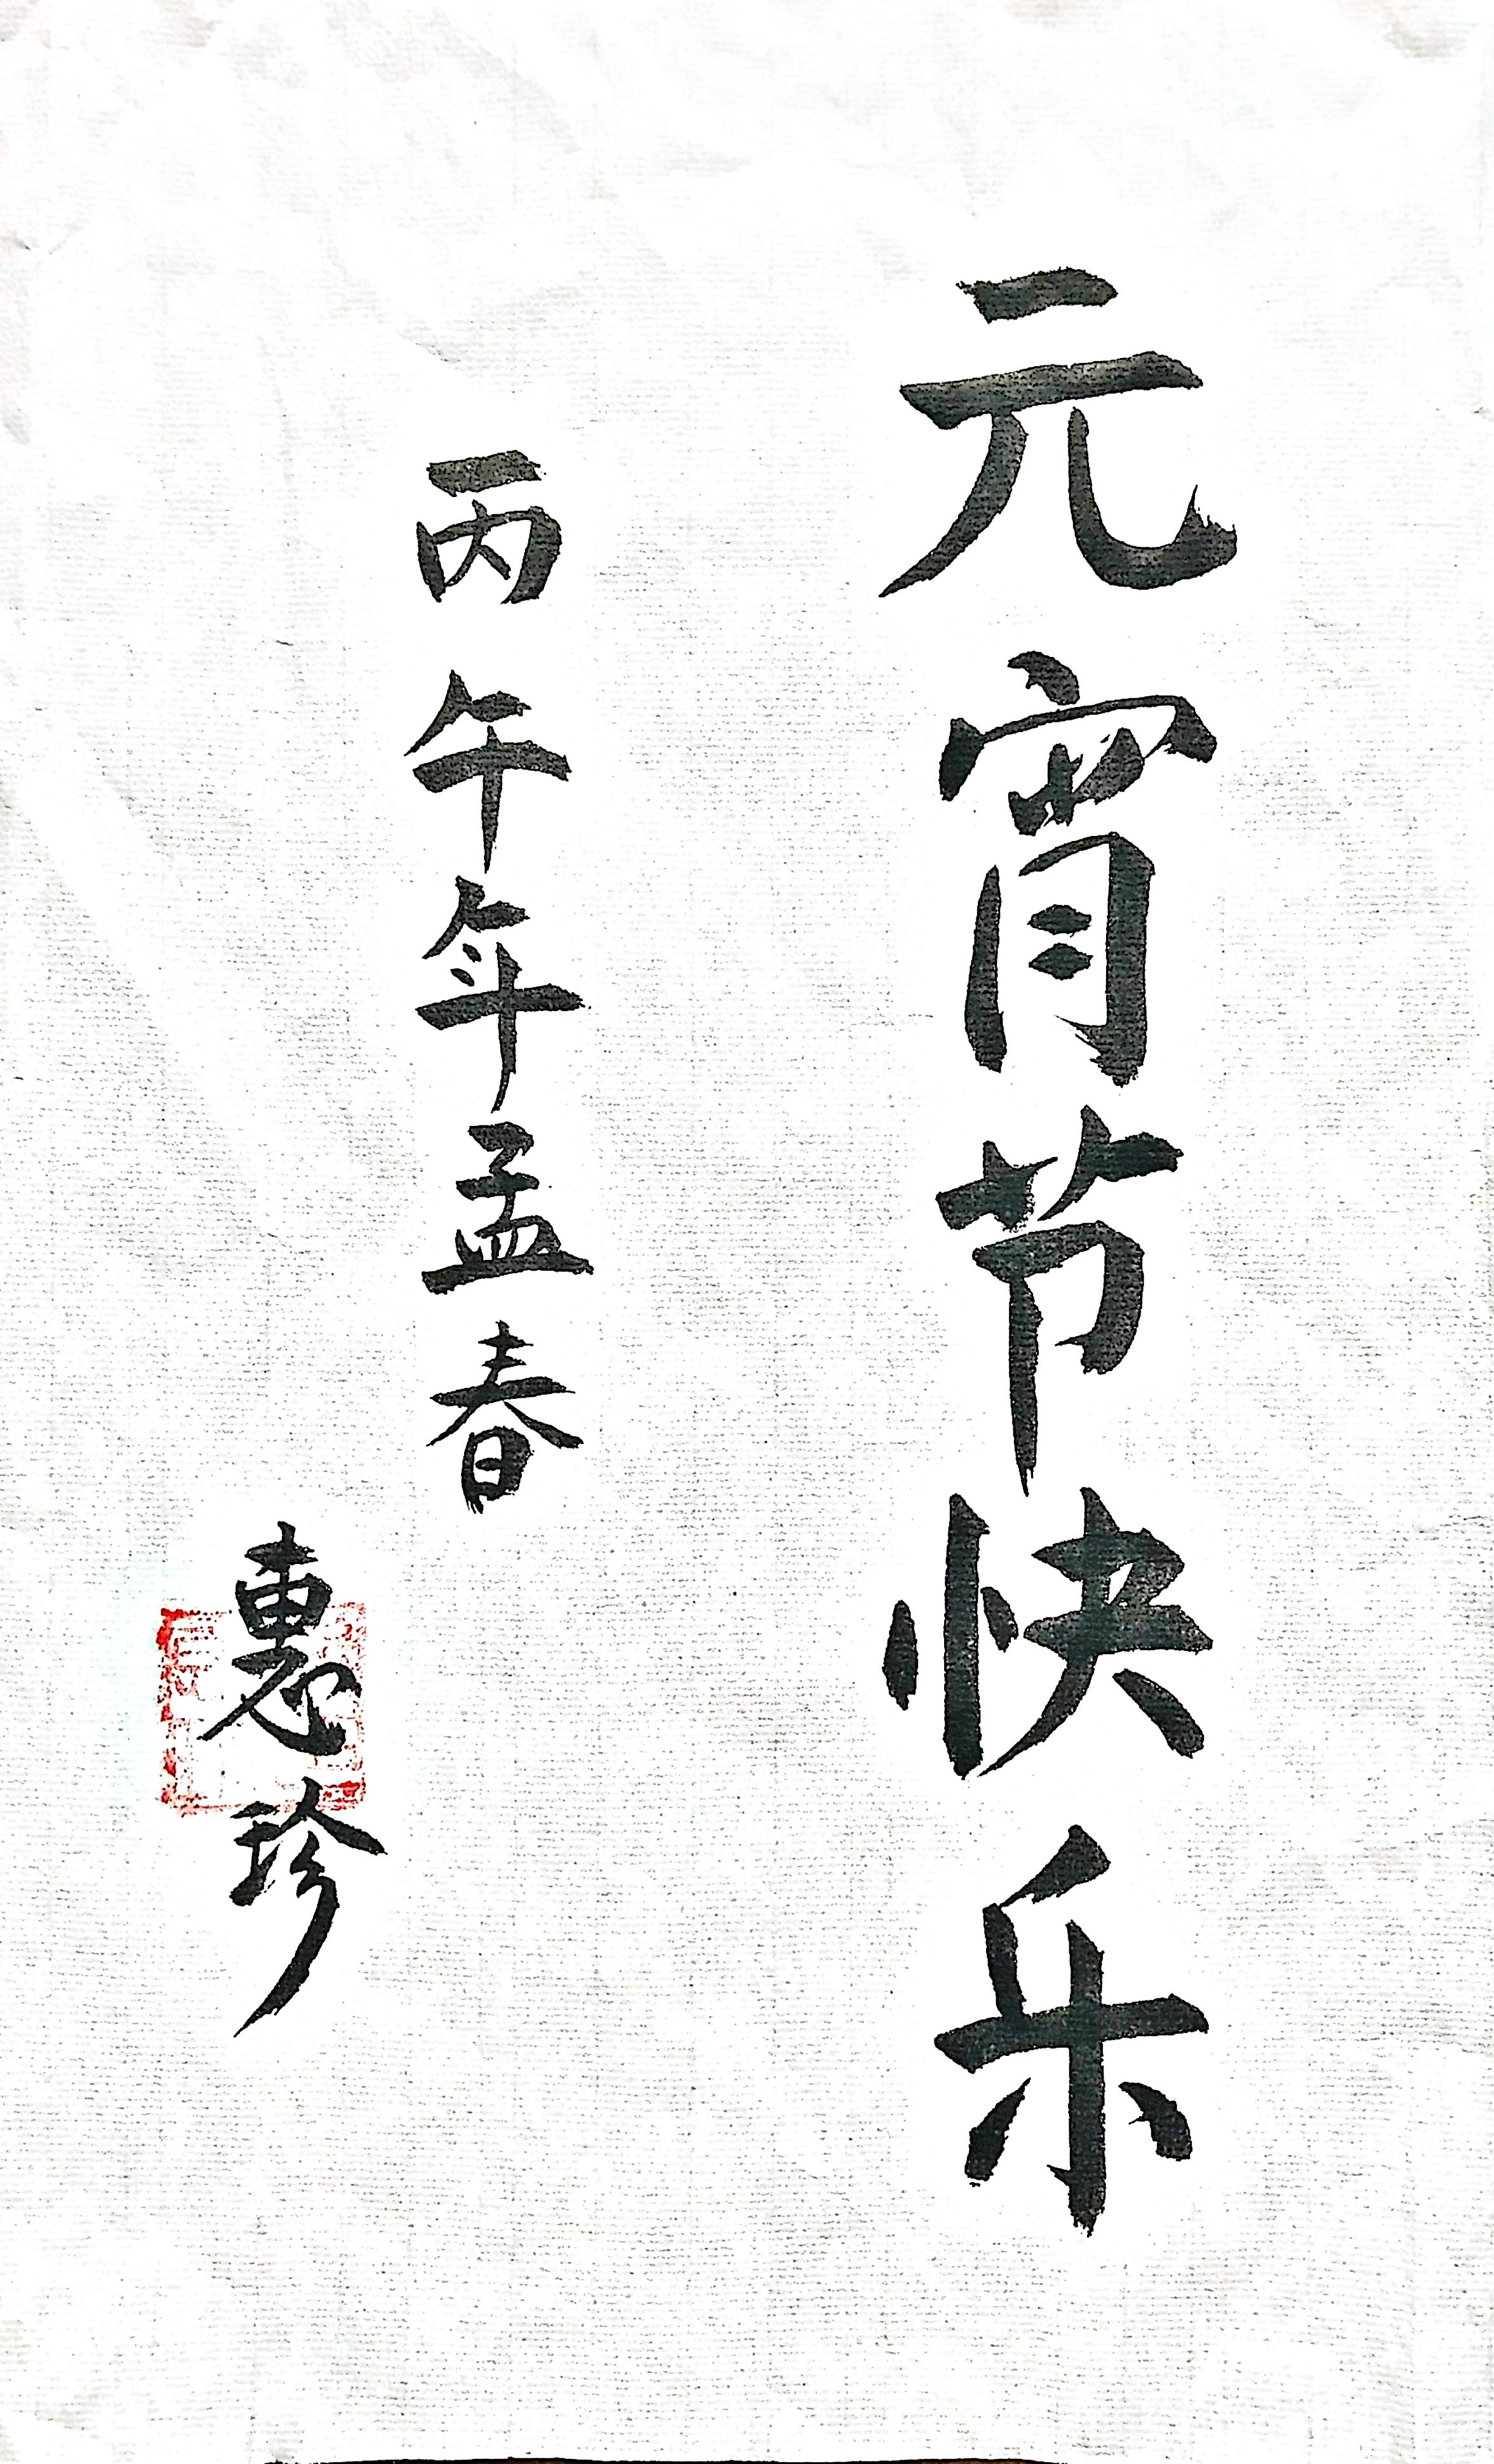 元宵节快乐
丙午年孟春
惠珍